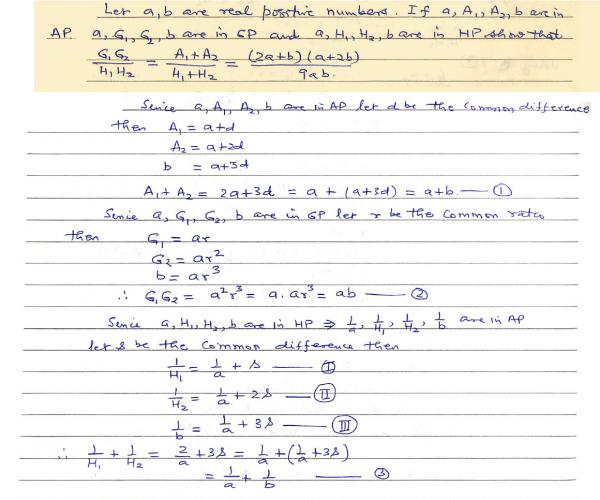 Let a, b are real positive numbers. If a, A₁, A₂, b are in
AP. a, G₁, G₂, b are in GP and a, H₁, H₂, b are in HP show that
G₁G₂/H₁H₂ = (A₁+A₂)/(H₁+H₂) = (2a+b)(a+2b)/9ab.
Senice a, A₁, A₂, b are in AP let d be the common difference
then A₁ = a+d
A₂ = a+2d
b = a+3d
A₁+A₂ = 2a+3d = a + (a+3d) = a+b. — ①
Senice a, G₁, G₂, b are in GP let r be the common ratio
then G₁ = ar
G₂ = ar²
b = ar³
∴ G₁G₂ = a²r³ = a.ar³ = ab — ②
Senice a, H₁, H₂, b are in HP ⇒ 1/a, 1/H₁, 1/H₂, 1/b are in AP
let s be the common difference then
1/H₁ = 1/a + s — Ⓘ
1/H₂ = 1/a + 2s — II
1/b = 1/a + 3s — III
∴ 1/H₁ + 1/H₂ = 2/a + 3s = 1/a + (1/a + 3s)
= 1/a + 1/b — ③